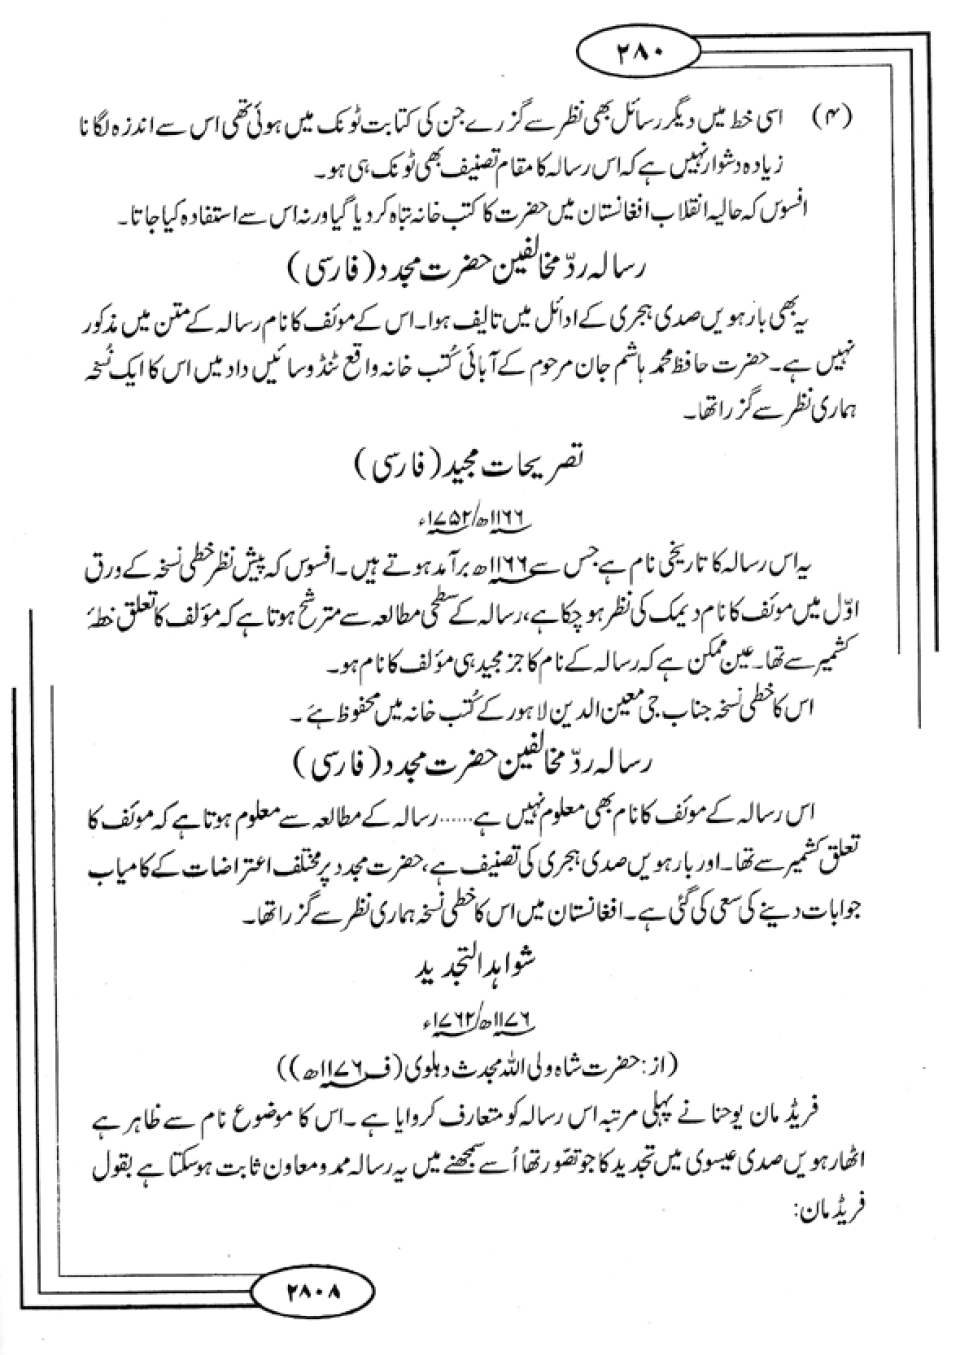 ۲۸۰
(۴) اسی خط میں دیگر رسائل بھی نظر سے گزرے جن کی کتابت ٹونک میں ہوئی تھی اس سے اندزہ لگانا
زیادہ دشوار نہیں ہے کہ اس رسالہ کا مقام تصنیف بھی ٹونک ہی ہو۔
افسوس کہ حالیہ انقلاب افغانستان میں حضرت کا کتب خانہ تباہ کر دیا گیا ورنہ اس سے استفادہ کیا جاتا۔
رسالہ ردّ مخالفین حضرت مجدد (فارسی)
یہ بھی بارہویں صدی ہجری کے ادائل میں تالیف ہوا۔ اس کے موئف کا نام رسالہ کے متن میں مذکور
نہیں ہے۔ حضرت حافظ محمد ہاشم جان مرحوم کے آبائی کُتب خانہ واقع ٹنڈو سائیں داد میں اس کا ایک نُسخہ
ہماری نظر سے گزرا تھا۔
تصریحات مجید (فارسی)
۱۱۶۶ھ/۱۷۵۲ء
یہ اس رسالہ کا تاریخی نام ہے جس سے ۱۱۶۶ھ برآمد ہوتے ہیں۔ افسوس کہ پیش نظر خطی نسخہ کے ورق
اوّل میں موئف کا نام دیمک کی نظر ہو چکا ہے، رسالہ کے سطحی مطالعہ سے مترشح ہوتا ہے کہ مؤلف کا تعلق خطۂ
کشمیر سے تھا۔ عین ممکن ہے کہ رسالہ کے نام کا جز مجید ہی مؤلف کا نام ہو۔
اس کا خطی نسخہ جناب جی معین الدین لاہور کے کُتب خانہ میں محفوظ ہے۔
رسالہ ردّ مخالفین حضرت مجدد (فارسی)
اس رسالہ کے موئف کا نام بھی معلوم نہیں ہے......رسالہ کے مطالعہ سے معلوم ہوتا ہے کہ موئف کا
تعلق کشمیر سے تھا۔ اور بارہویں صدی ہجری کی تصنیف ہے، حضرت مجدد پر مختلف اعتراضات کے کامیاب
جوابات دینے کی سعی کی گئی ہے۔ افغانستان میں اس کا خطی نسخہ ہماری نظر سے گزرا تھا۔
شواہد التجدید
۱۱۷۶ھ/۱۷۶۲ء
(از: حضرت شاہ ولی اللہ محدث دہلوی (ف ۱۱۷۶ھ))
فریڈ مان یوحنا نے پہلی مرتبہ اس رسالہ کو متعارف کروایا ہے۔ اس کا موضوع نام سے ظاہر ہے
اٹھارہویں صدی عیسوی میں تجدید کا جو تصّور تھا اُسے سمجھنے میں یہ رسالہ ممد و معاون ثابت ہو سکتا ہے بقول
فریڈ مان:
۲۸۰۸